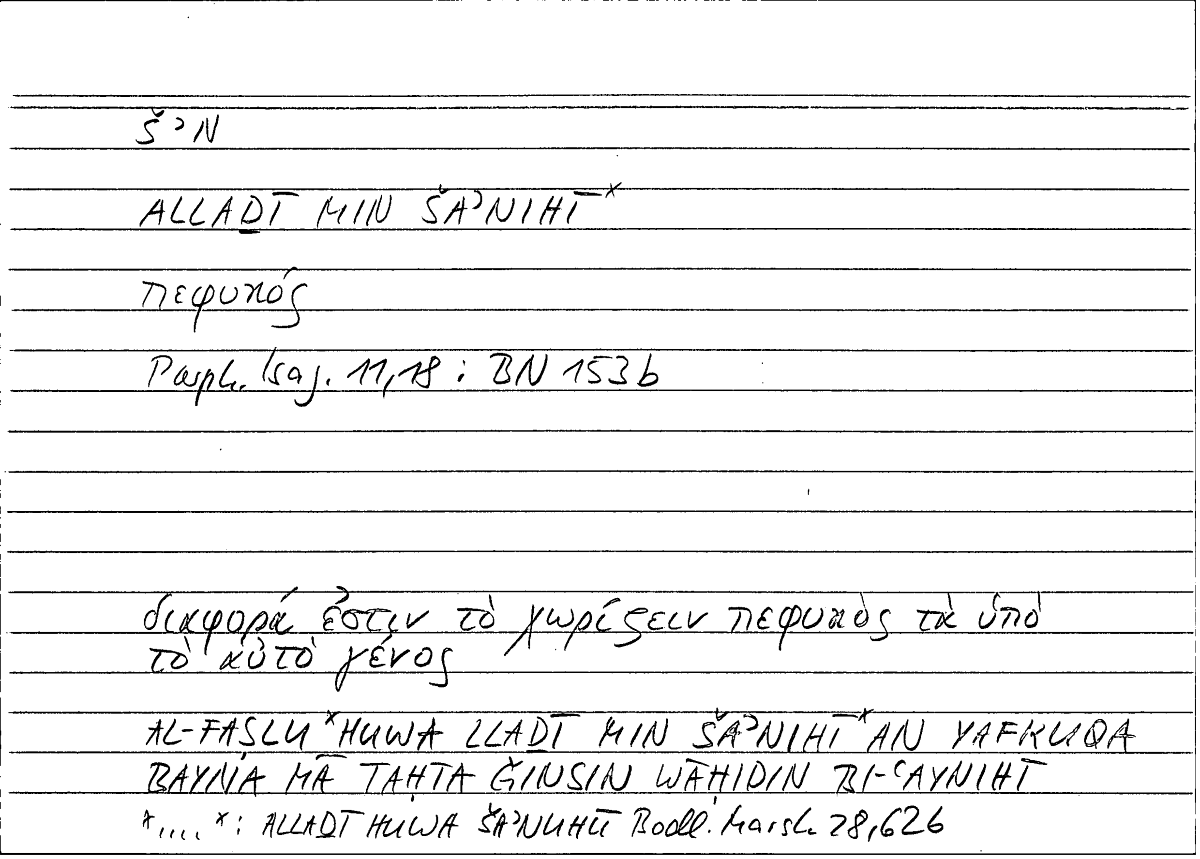 ŠʾN
ALLAḎĪ MIN ŠAʾNIHĪ×
πεφυκός
Porph. Isag. 11,18 : BN 153b
διαφορά ἐστιν τὸ χωρίζειν πεφυκὸς τὰ ὑπὸ
τὸ αὐτὸ γένος
AL-FAṢLU ×HUWA LLAḎĪ MIN ŠAʾNIHĪ× AN YAFRUQA
BAYNA MĀ TAḤTA ǦINSIN WĀḤIDIN BI-ʿAYNIHĪ
×....×: ALLAḎĪ HUWA ŠAʾNUHŪ Bodl. Marsh. 28,62b